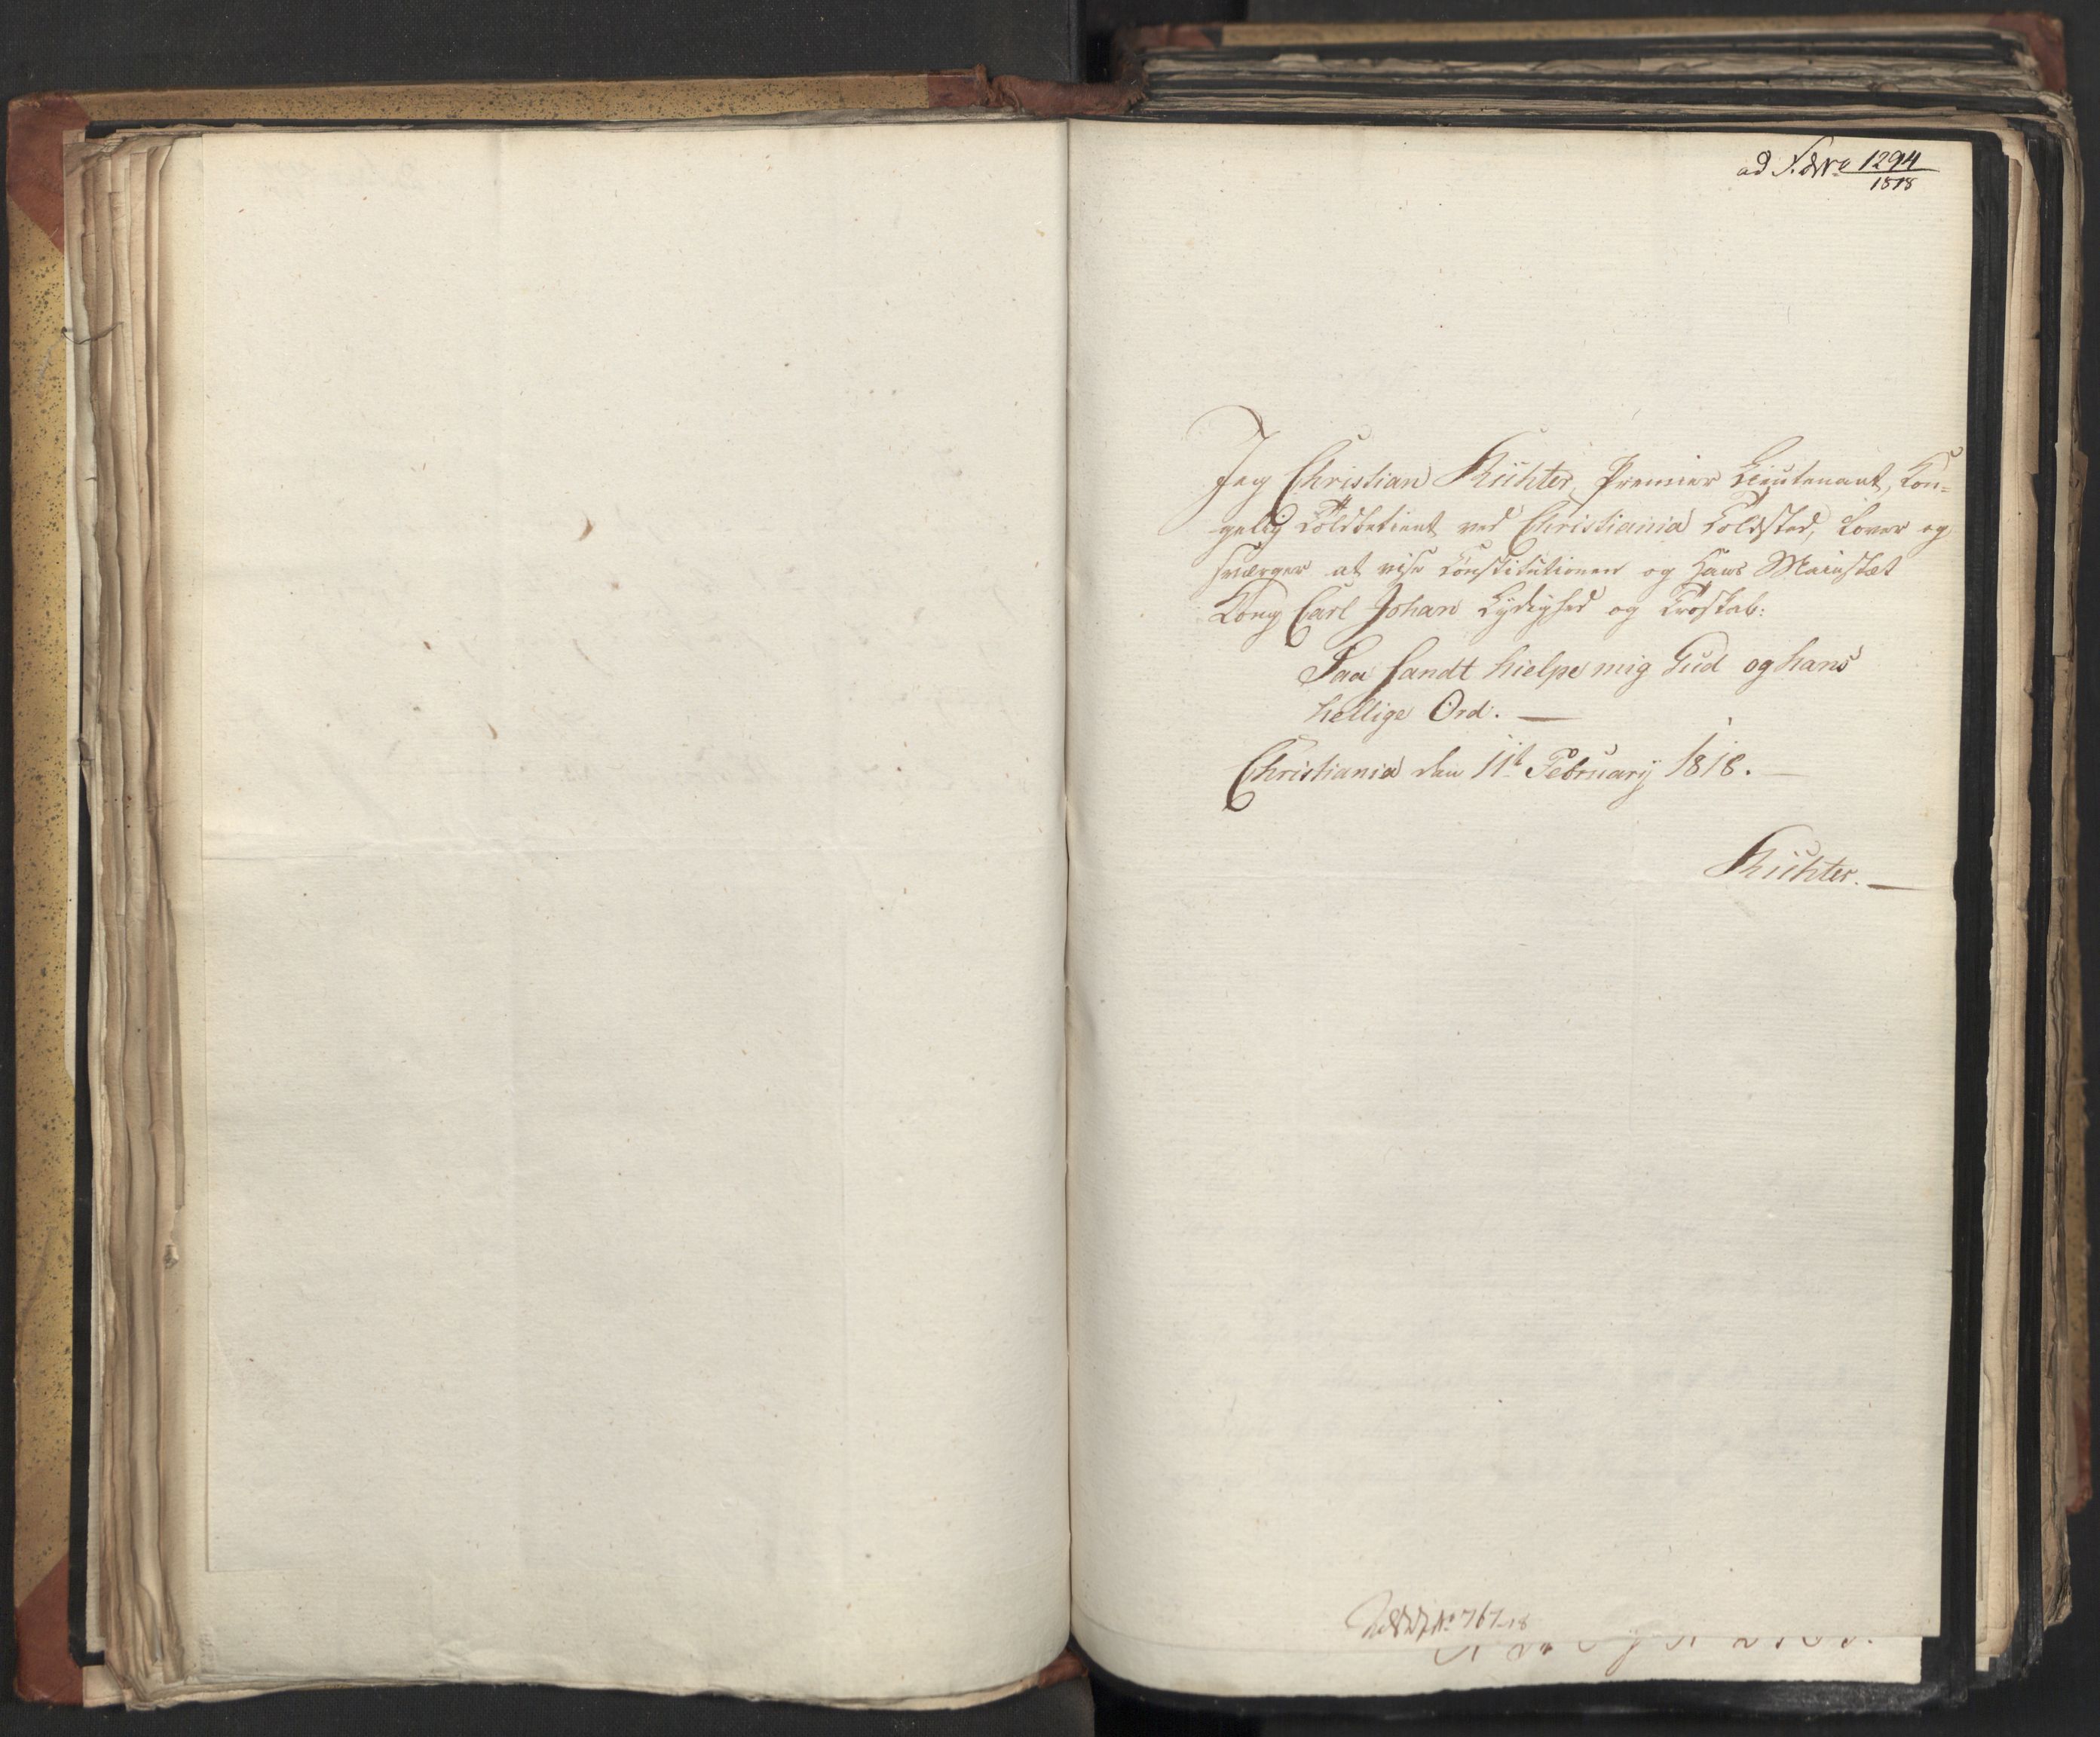 ad F. D. No 1294
1818
Jeg Christian Richter, Premier Lieutenant, Kon=
gelig Toldbetient ved Christiania Toldsted, Lover og
sværger at vise Constitutionen og Hans Maiestæt
Kong Carl Johan Lydighed og Troskab:
Saa sandt hielpe mig Gud og hans
hellige Ord. —
Christiania den 11t February 1818. —
Richter. —
No 767-18